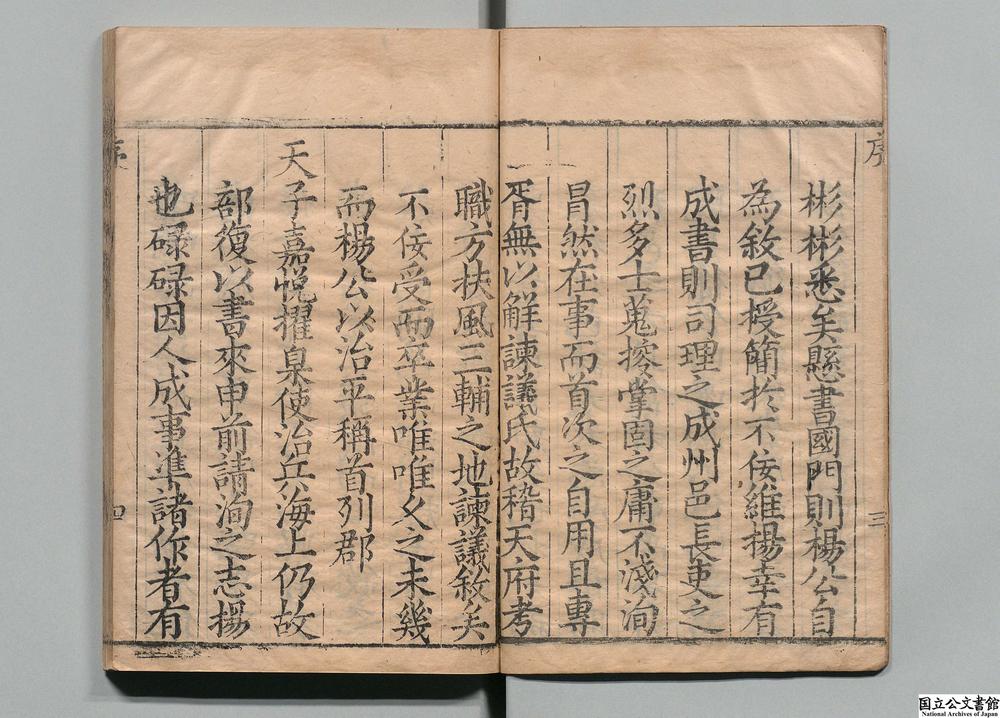 序
三
彬彬悉矣懸書國門則楊公自
為敘已授簡於不佞維揚幸有
成書則司理之成州邑長吏之
烈多士蒐撏掌固之庸不淺洵
冒然在事而首次之自用且專
胥無以解諫議氏故稽天府考
職方扶風三輔之地諫議敘矣
不佞受而卒業唯唯久之未幾
而楊公以治平稱首列郡
天子嘉悅擢臬使治兵海上仍故
部復以書來申前請洵之志揚
也碌碌因人成事準諸作者有
序
四
国立公文書館
National Archives of Japan